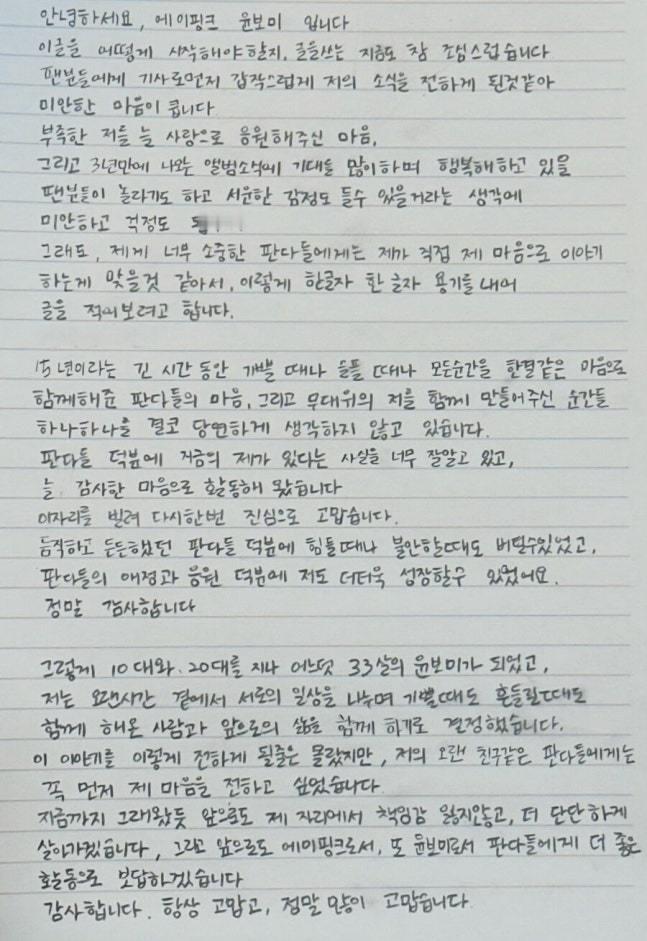 안녕하세요, 에이핑크 윤보미 입니다
이글을 어떻게 시작해야할지, 글을쓰는 지금도 참 조심스럽습니다
팬분들에게 기사로먼저 갑작스럽게 저의 소식을 전하게 된것같아
미안한 마음이 큽니다
부족한 저를 늘 사랑으로 응원해주신 마음,
그리고 3년만에 나오는 앨범소식에 기대를 많이하며 행복해하고 있을
팬분들이 놀라기도 하고 서운한 감정도 들수 있을거라는 생각에
미안하고 걱정도
그래도, 제게 너무 소중한 판다들에게는 제가 직접 제 마음으로 이야기
하는게 맞을것 같아서, 이렇게 한글자 한 글자 용기를 내어
글을 적어보려고 합니다.
15년이라는 긴 시간 동안 기쁠 때나 슬플 때나 모든순간을 한결같은 마음으로
함께해준 판다들의 마음, 그리고 무대위의 저를 함께 만들어주신 순간들
하나하나를 결코 당연하게 생각하지 않고 있습니다.
판다들 덕분에 지금의 제가 있다는 사실을 너무 잘알고 있고,
늘 감사한 마음으로 활동해 왔습니다
이자리를 빌려 다시한번 진심으로 고맙습니다.
듬직하고 든든했던 판다들 덕분에 힘들때나 불안할때도 버틸수있었고,
판다들의 애정과 응원 덕분에 저도 더더욱 성장할수 있었어요.
정말 감사합니다
그렇게 10대와 20대를 지나 어느덧 33살의 윤보미가 되었고,
저는 오랜시간 곁에서 서로의 일상을 나누며 기쁠때도 흔들릴때도
함께 해온 사람과 앞으로의 삶을 함께 하기로 결정했습니다.
이 이야기를 이렇게 전하게 될줄은 몰랐지만, 저의 오랜 친구같은 판다들에게는
꼭 먼저 제 마음을 전하고 싶었습니다.
지금까지 그래왔듯 앞으로도 제 자리에서 책임감 잃지않고, 더 단단하게
살아가겠습니다, 그리고 앞으로도 에이핑크로서, 또 윤보미로서 판다들에게 더 좋은
활동으로 보답하겠습니다
감사합니다. 항상 고맙고, 정말 많이 고맙습니다.